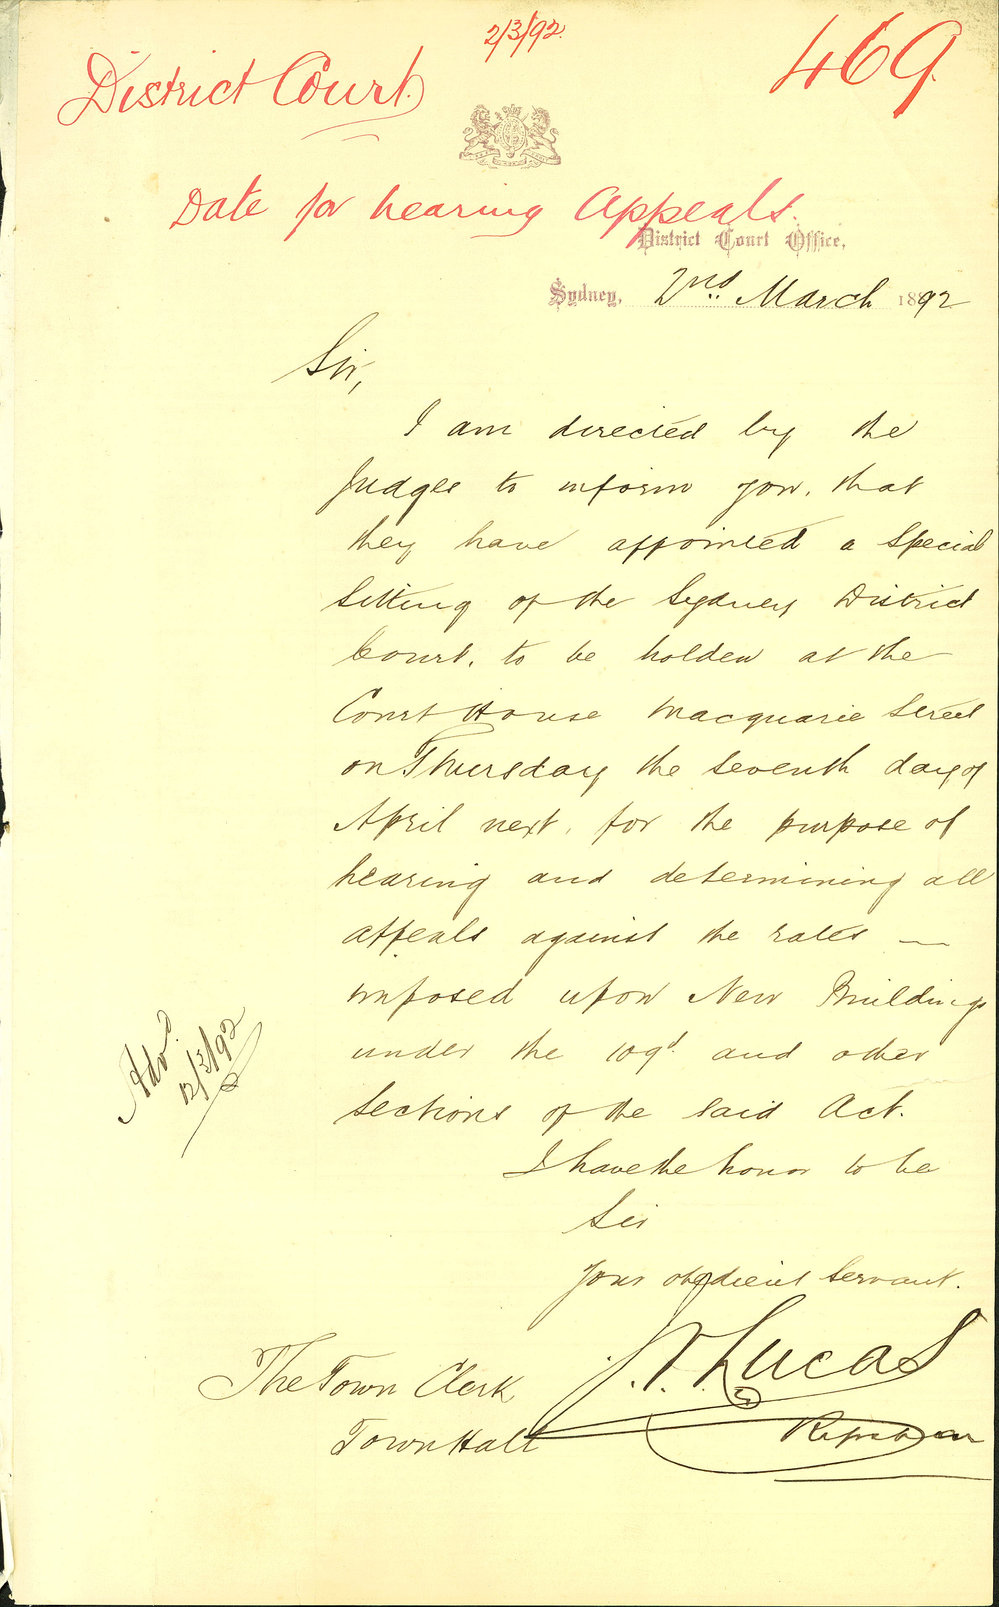 2/3/92.
469.
District Court.
Date for hearing Appeals.
District Court Office,
Sydney, 2nd. March 1892
Sir,
I am directed by the
Judges to inform you, that
they have appointed a Special
Sitting of the Sydney District
Court, to be holden at the
Court House Macquarie Street
on Thursday the Seventh day of
April next, for the purpose of
hearing and determining all
appeals against the rates —
imposed upon New Buildings
under the 109th. and other
Sections of the said Act.
Advd.
12/3/92
I have the honor to be
Sir
Your obedient Servant.
Lucas
Registrar
The Town Clerk
Town Hall